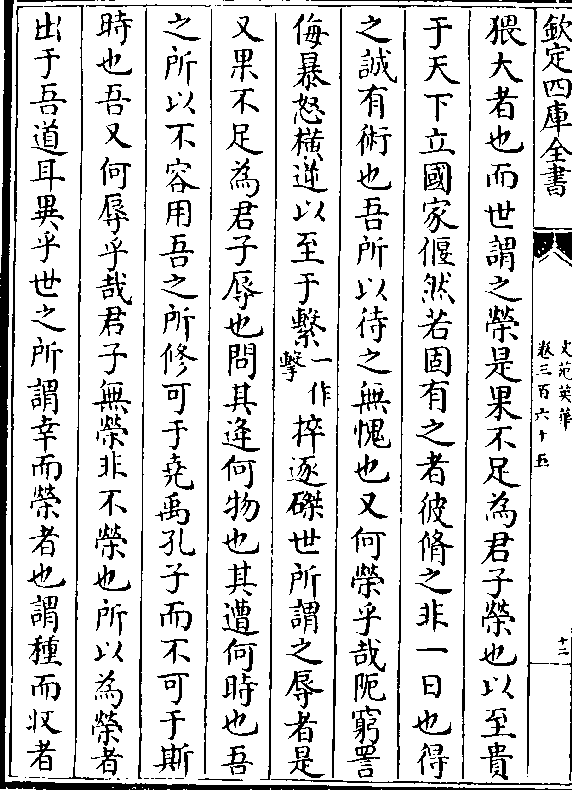 欽定四庫全書
文苑英華
卷三百六十五
十二
猥大者也而世謂之榮是果不足為君子榮也以至貴
于天下立國家偃然若固有之者彼脩之非一日也得
之誠有術也吾所以待之無愧也又何榮乎哉阨窮詈
侮暴怒橫逆以至于繫一作擊捽逐磔世所謂之辱者是
又果不足為君子辱也問其逢何物也其遭何時也吾
之所以不容用吾之所修可于堯禹孔子而不可于斯
時也吾又何辱乎哉君子無榮非不榮也所以為榮者
出于吾道耳異乎世之所謂幸而榮者也謂種而収者